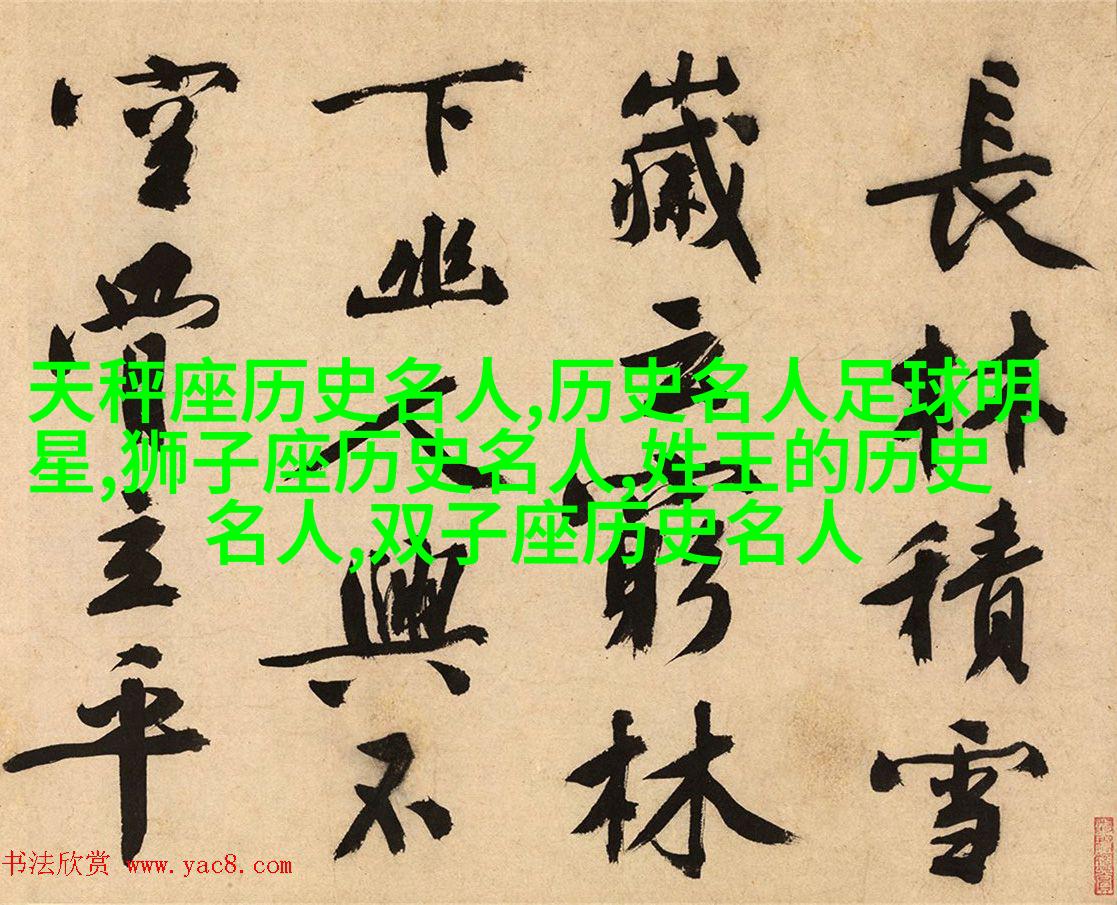 長林積雪
嵗云窮林
下幽人興不
立平
天秤座历史名人,历史名人足球明
星,狮子座历史名人,姓王的历史
名人,双子座历史名人
书法欣赏 www.yac8.com